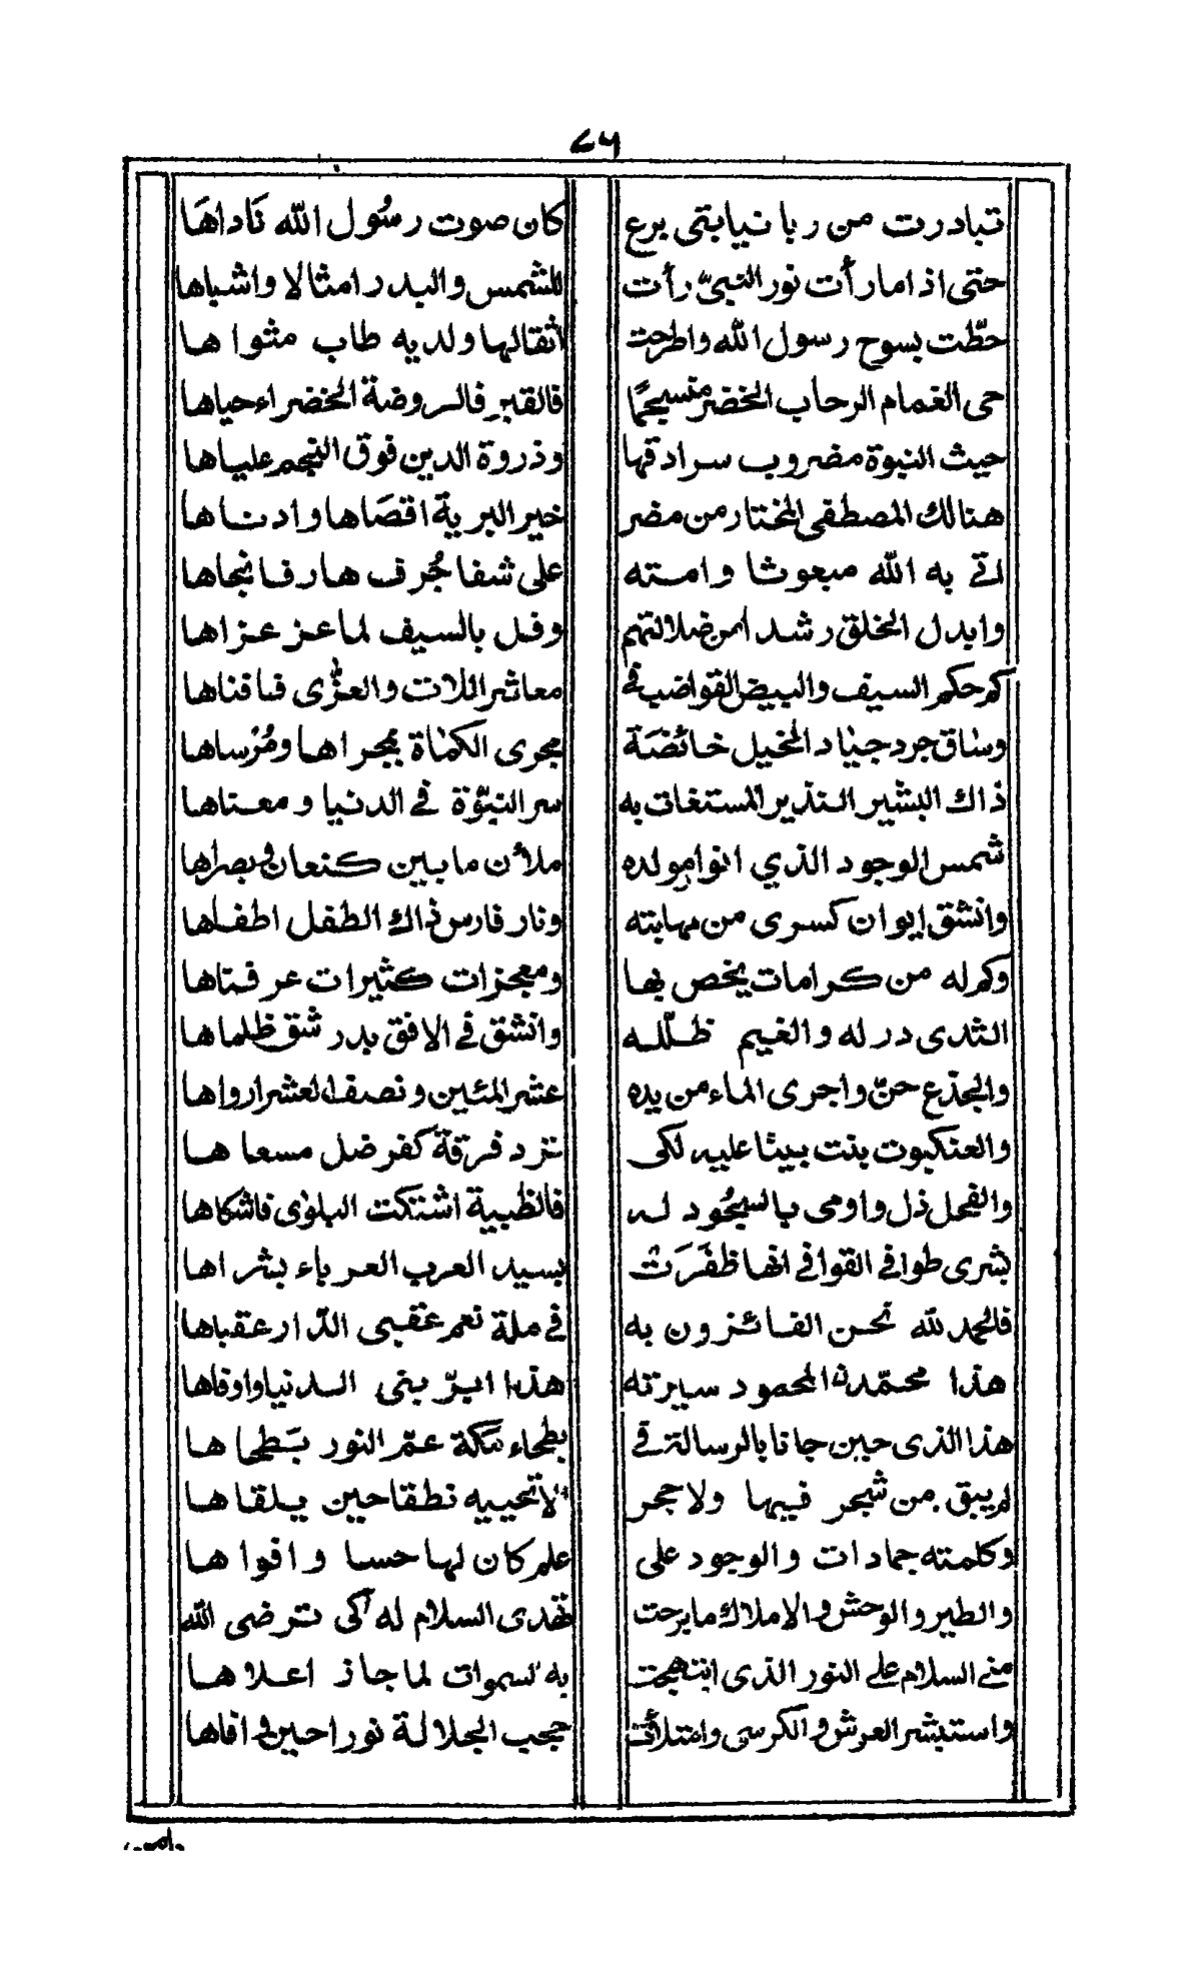 ٢٦
تبادرت من ربا نيابتى برع كان صوت رسُول الله نَاداهَا
حتى اذا ما رأت نور النبىّ رأت للشمس والبدر امثالا واشباها
حطّت بسوح رسول الله واطرحت اثقالها ولديه طاب مثوا ها
حى الغمام الرحاب الخضر منسجمًا فالقبر فالروضة الخضراء حياها
حيث النبوة مضروب سرادقها وذروة الدين فوق النجم علياها
هنالك المصطفى المختار من مضر خير البرية اقصَاها وادناها
اتى به الله مبعوثا وامته على شفا جُرف هار فانجاها
وابدل الخلق رشدا من ضلالتهم وفل بالسيف لما عز عزاها
كم حكم السيف والبيض القواضب فى معاشر اللات والعزّى فافناها
وساق جرد جياد الخيل خائضَة مجرى الكماة بمجراها ومُرساها
ذاك البشير النذير المستغاث به سر النبوّة فى الدنيا ومعناها
شمس الوجود الذي انوار مولده ملأن ما بين كنعان وبصراها
وانشق ايوان كسرى من مهابته ونار فارس ذاك الطفل اطفاها
وكم له من كرامات يخص بها ومعجزات كثيرات عرفناها
الثدى در له والغيم ظلّله وانشق فى الافق بدر شق ظلماها
والجذع حنّ واجرى الماء من يده عشر المئين ونصف العشر ارواها
والعنكبوت بنت بيتا عليه لكى ترد فرقة كفر ضل مسعا ها
والفحل ذل واومى بالسجُود له فالظبية اشتكت البلوى فاشكاها
بشرى طوافى القوافى انها ظفَرَت بسيد العرب العرباء بشراها
فالحمد لله نحن الفائزون به فى ملة نعم عقبى الدّار عقباها
هذا محمّدن المحمود سيرته هذا ابرّ بنى الدنيا واوفاها
هذا الذى حين جانا بالرسالة فى بطحاء مكة عمّ النور بسَطحا ها
لم يبق من شجر فيها ولا حجر الا تحييه نطقا حين يلقاها
وكلمته جمادات والوجود على علم كان لها حسا وافوا ها
والطير والوحش والاملاك ما برحت تهدى السلام له كى ترضى الله
منى السلام على النور الذى ابتهجت به السموات لما جاز اعلاها
واستبشر العرش والكرسى وامتلأت حجب الجلالة نورا حين وافاها